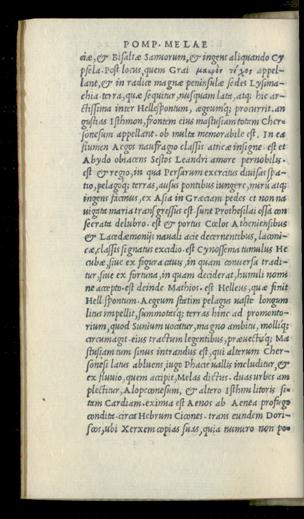 POMP. MELAE
ciæ, & Bisaltæ Samiorum, & ingens aliquando Cy
psela. Post locus, quem Grai μακρὸν τεῖχος appel-
lant, & in radice magnæ peninsulæ sedes Lysima-
chia. terra, quæ sequitur, nusquam lata, atq; hic ar-
ctissima inter Hellespontum, ægeumq; procurrit. an
gustias Isthmon, frontem eius mastusiam totam Cher-
sonesum appellant. ob multa memorabile est. In ea
flumen Aegos naufragio classis atticæ insigne. est et
Abydo obiacens Sestos Leandri amore pernobilis.
est & regio, in qua Persarum exercitus diuisas spa-
tio, pelagoq; terras, ausus pontibus iungere, mirū atq;
ingens facinus, ex Asia in Græciam pedes et non na
uigata maria transgressus est. sunt Prothesilai ossa con
secrata delubro. est & portus Cœlos Atheniensibus
& Lacedæmonijs nauali acie decernentibus, laconi-
cæ, classis signatus excidio. est Cynossema tumulus He
cubæ, siue ex figura canis, in quam conuersa tradi-
tur, siue ex fortuna, in quam deciderat, humili nomi
ne accepto. est deinde Mathios. est Helleus, quæ finit
Hellespontum. Aegeum statim pelagus uaste longum
litus impellit, summotasq; terras hinc ad promonto-
rium, quod Sunium uocatur, magno ambitu, molliq;
circumagit. eius tractum legentibus, præuectisq; Ma
stusiam tum sinus intrandus est, qui alterum Cher-
sonesi latus abluens iugo Phacie uallis includitur, &
ex fluuio, quem accipit, Melas dictus. duas urbes am
plectitur, Alopconesum, & altero Isthmi litore si-
tam Cardiam. eximia est Aenos ab Aenea profugo
condita. circa Hebrum Cicones. trans eundem Dori-
scos, ubi Xerxem copias suas, quia numero non po-